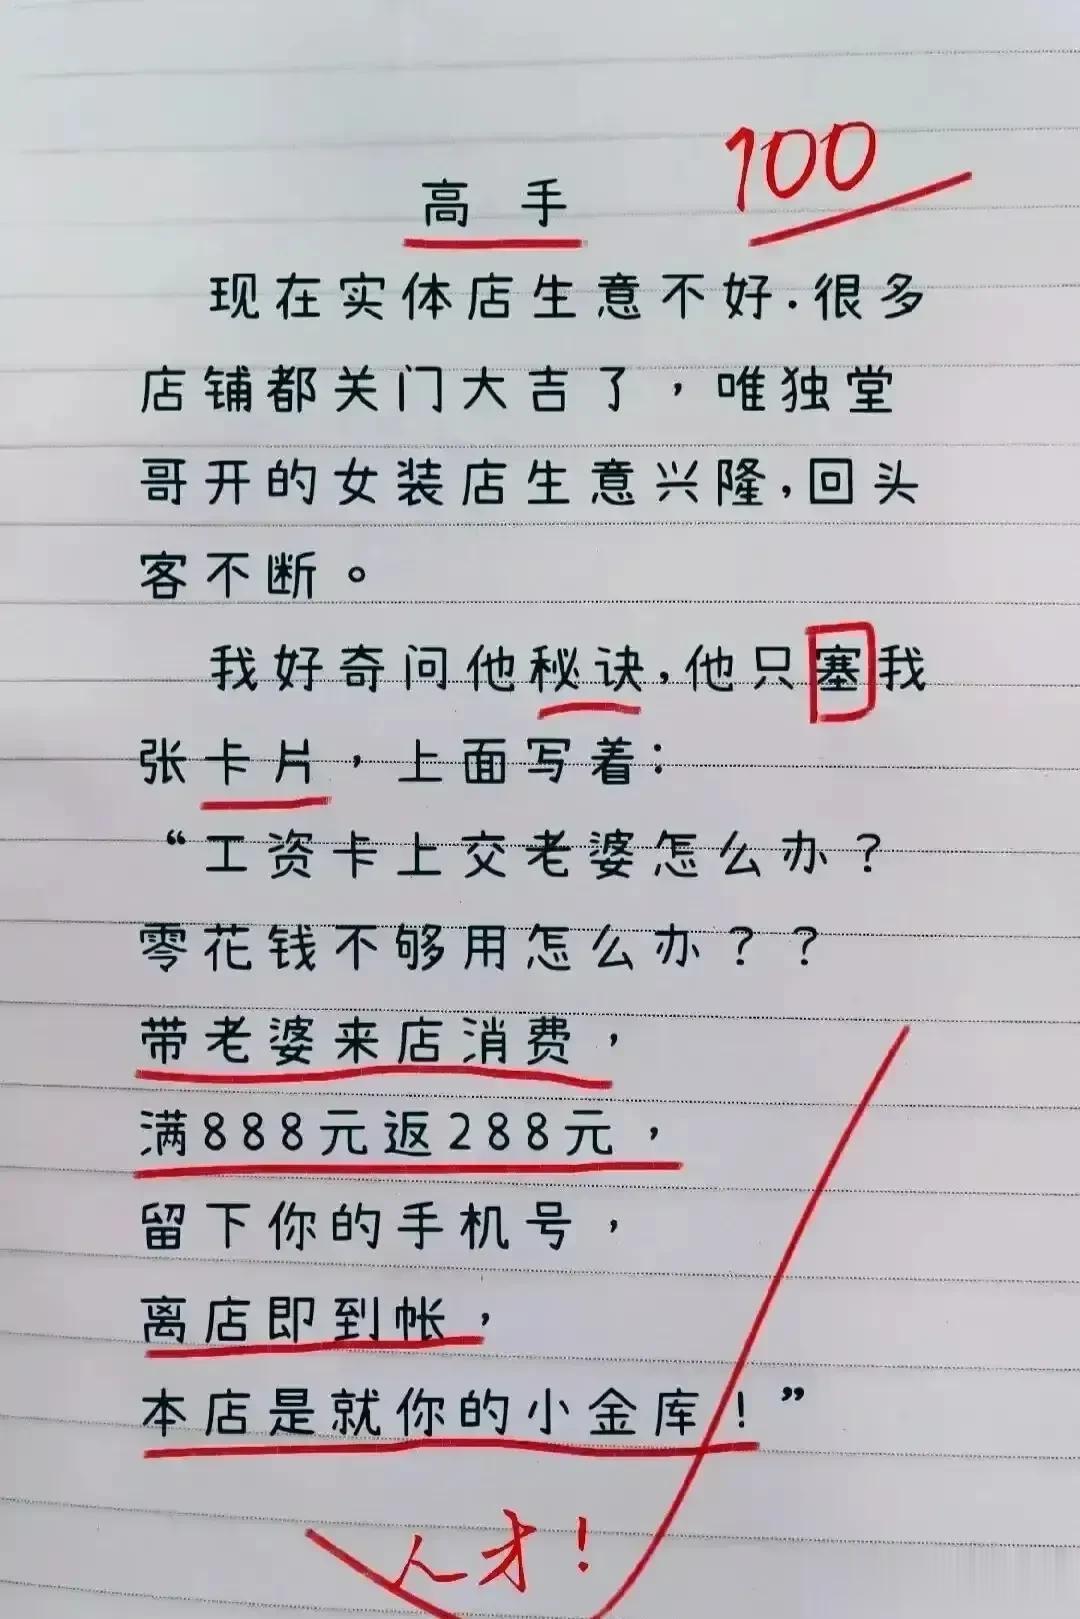 100
高手
现在实体店生意不好.很多
店铺都关门大吉了，唯独堂
哥开的女装店生意兴隆,回头
客不断。
我好奇问他秘诀,他只塞我
张卡片，上面写着:
“工资卡上交老婆怎么办?
零花钱不够用怎么办??
带老婆来店消费，
满888元返288元，
留下你的手机号，
离店即到帐，
本店是就你的小金库!”
人才!